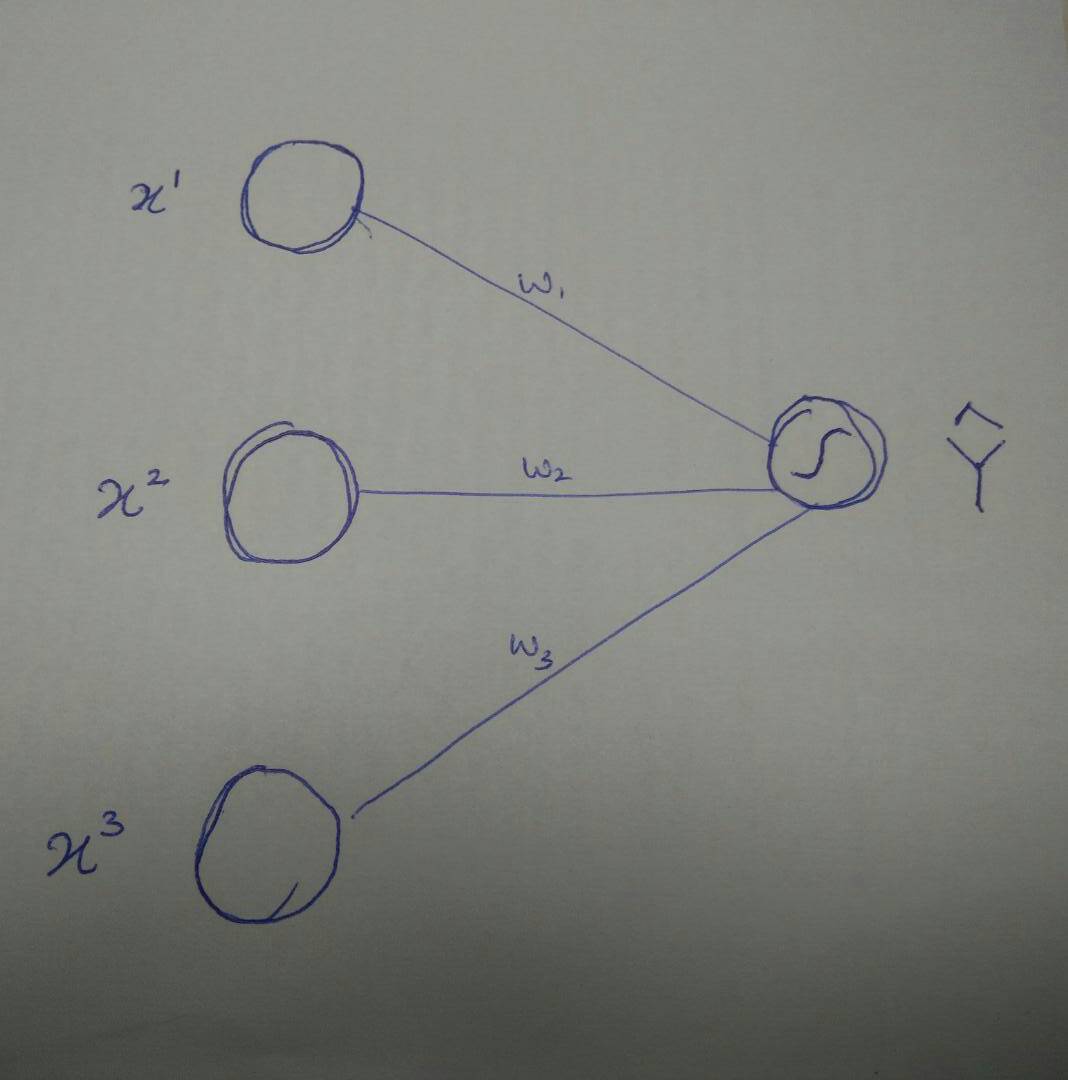 x¹
w₁
x²
w₂
∫ Ŷ
w₃
x³